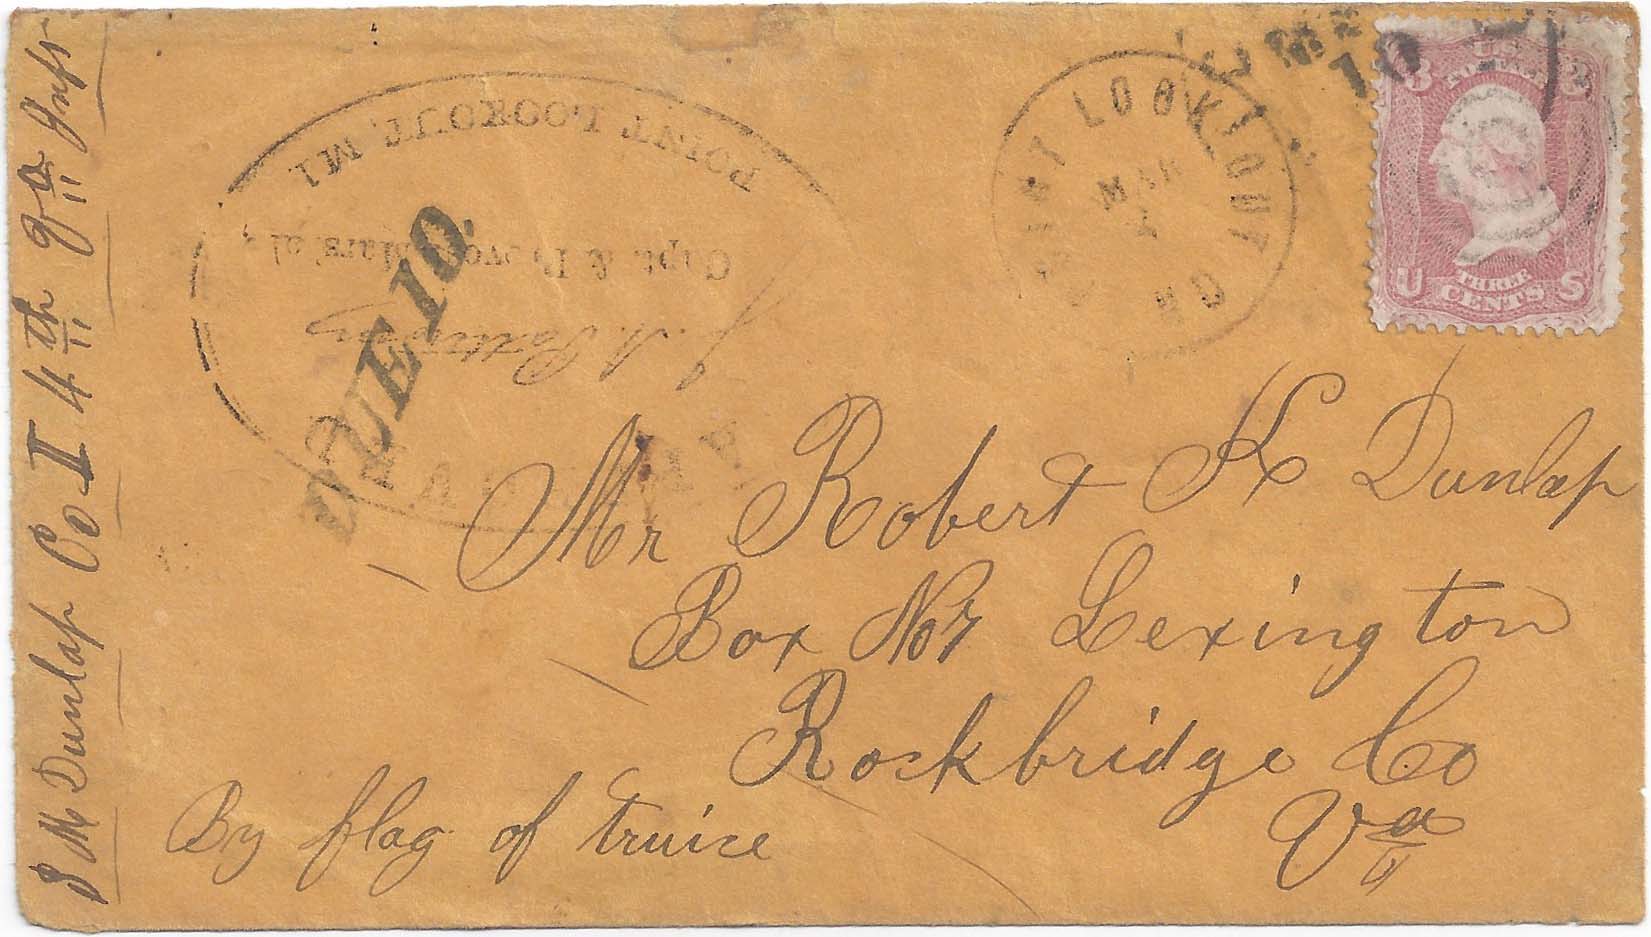 S M Dunlap Co I 4th Va Inft
POINT LOOKOUT, MD.
Capt. & Provost Marshal
DUE 10.
POINT LOOKOUT
MAR
MD
10
3 3
U.S.
POSTAGE
U THREE CENTS S
Mr Robert K Dunlap
Box No 7 Lexington
Rockbridge Co
Va
By flag of truice